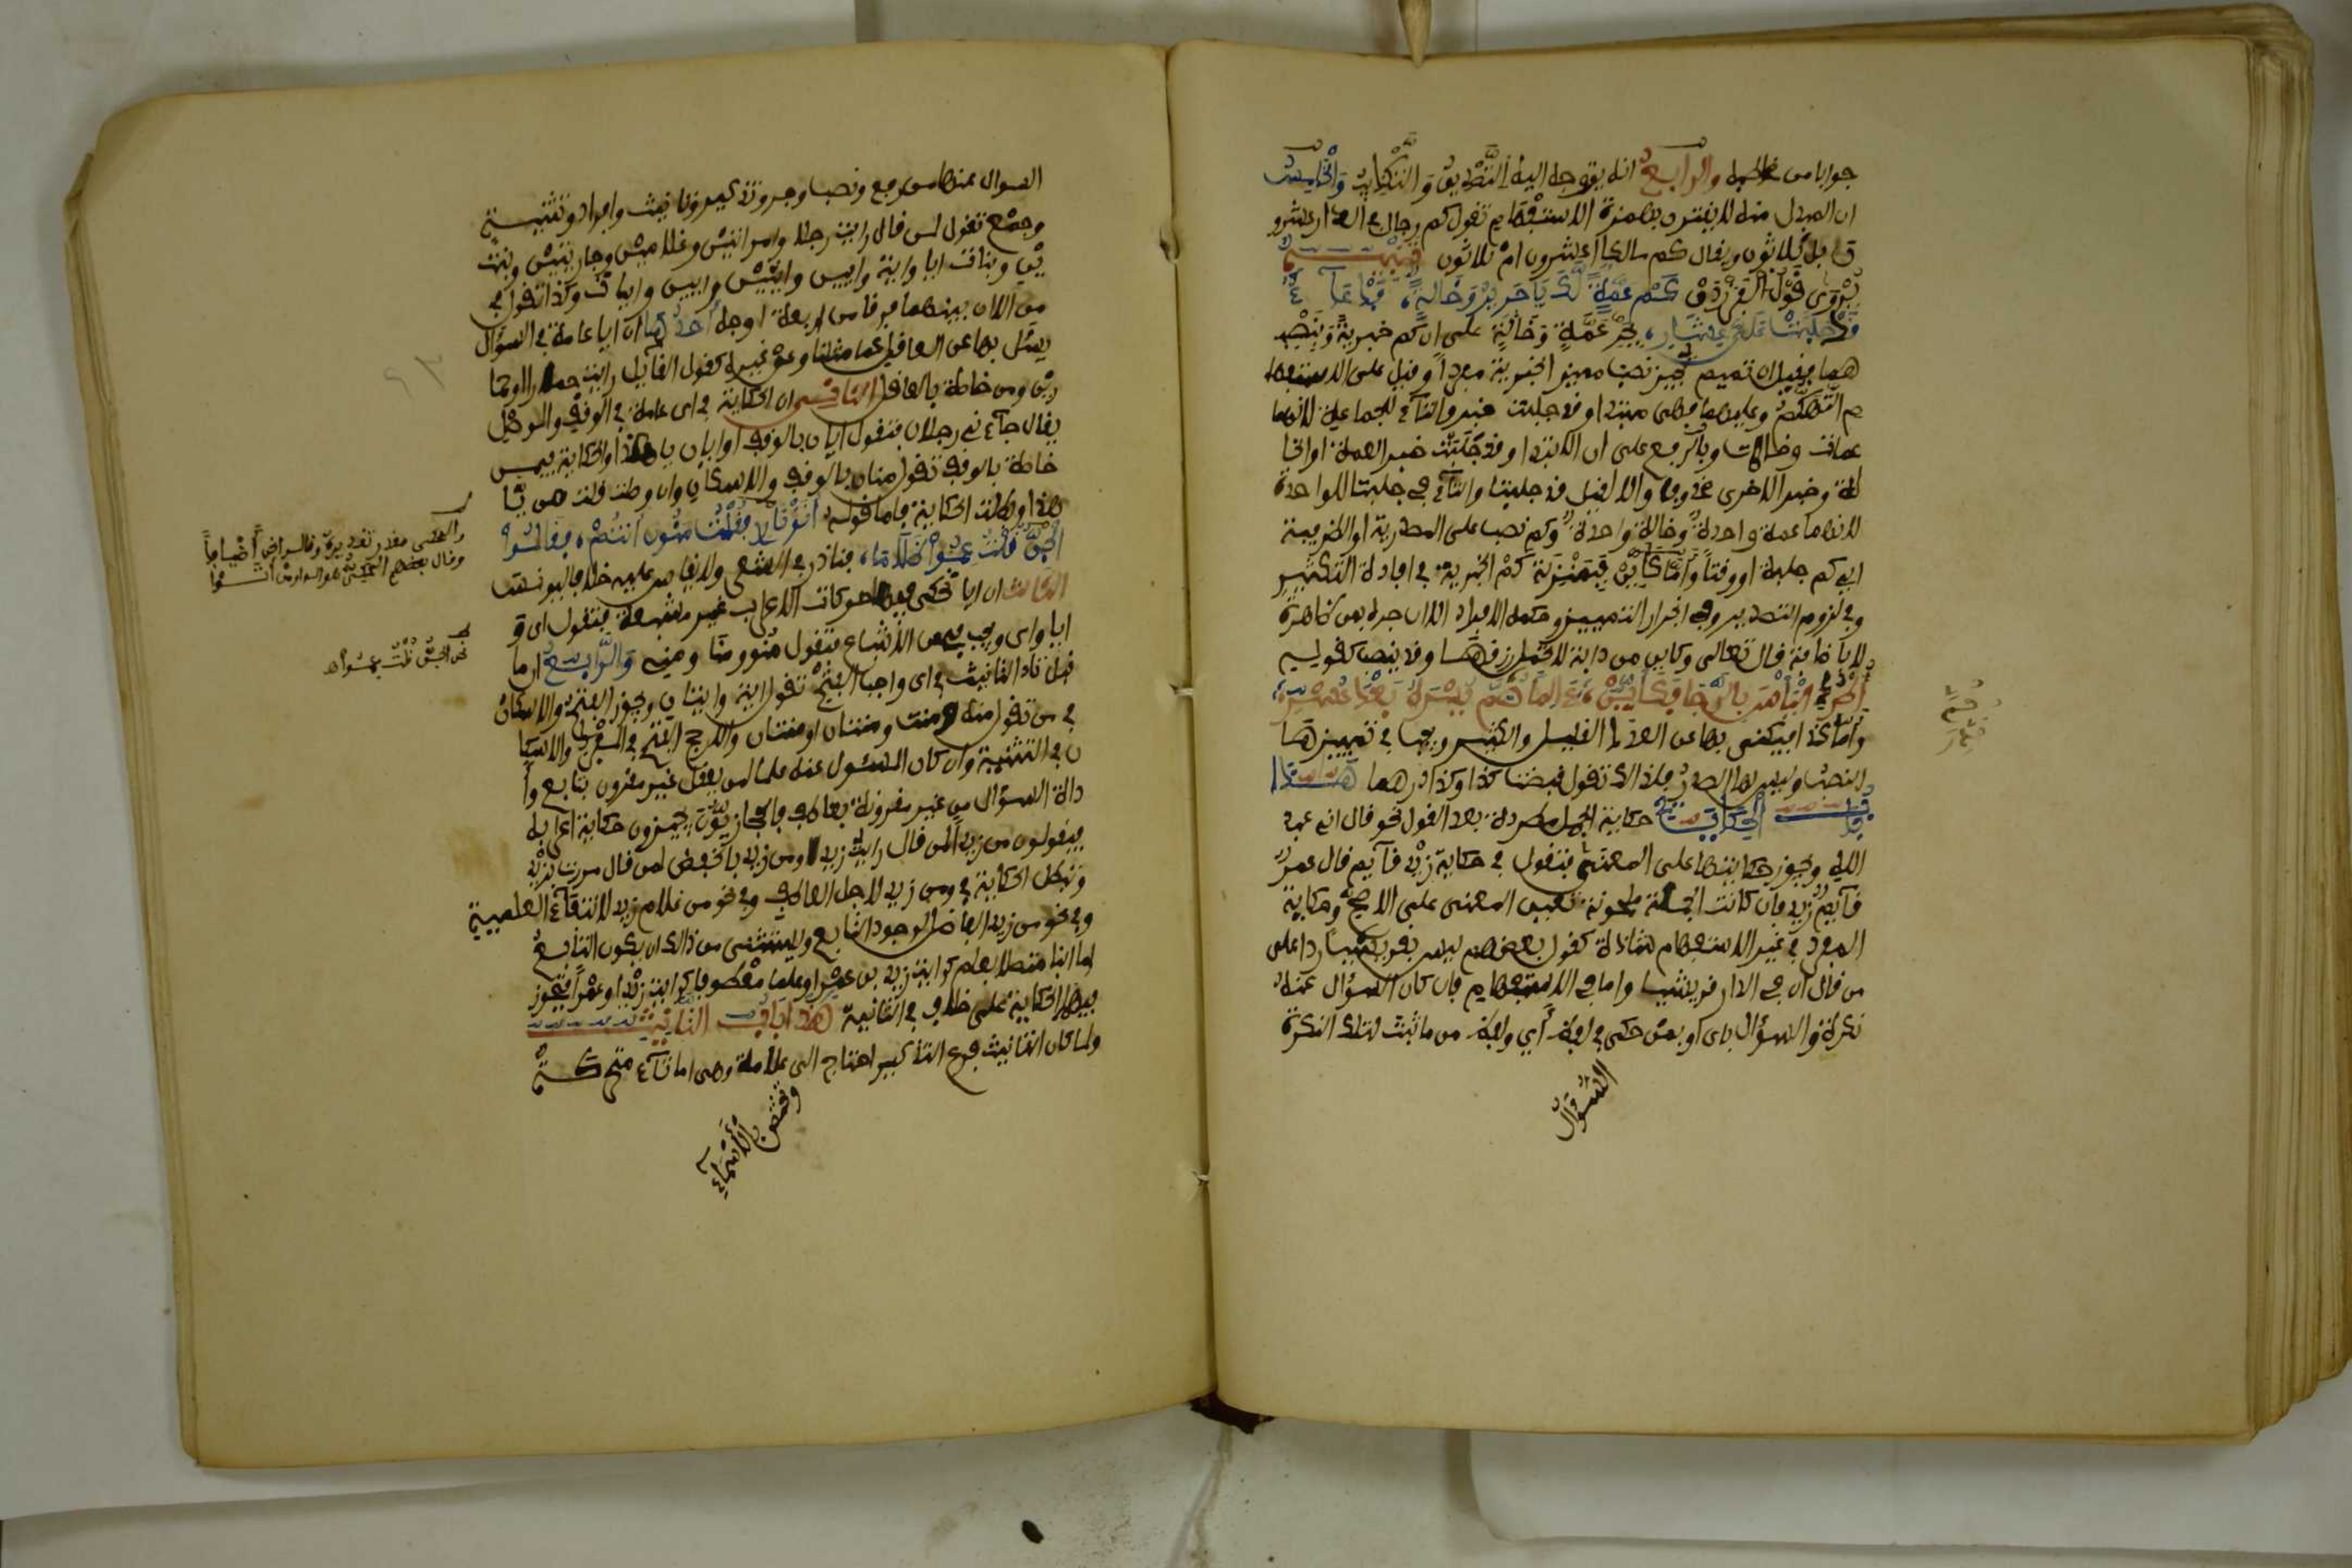 جوابا من مخاطبه والرابع انه يتوجه اليه التصديق والتكذيب والخامس
ان المبدل منه لا يفترن بهمزة الاستفهام تقول كم رجال في الدار عشرو
ن بل ثلاثون ويقال كم مالك أعشرون ام ثلاثون تنبيه
يروى قول الفرزدق كم عمة لك يا جرير وخالة، فدعاء
قد حلبت على عشار، بجر عمة وخالة على ان كم خبرية وبنصب
هما فقيل ان تميم تجيز نصب مميز الخبرية مفردا وقيل على الاستفها
م التهكمي وعليهما فهي مبتدا وقد حلبت خبر والتآء للجماعة لانهما
عمات وخالات وبالرفع على ان المبتدا وقد حلبت خبر العمة او الخا
لة وخبر الاخرى محذوف والا لقيل قد حلبتا والتآء في حلبت للواحدة
لانهما عمة واحدة وخالة واحدة وكم نصب على المصدرية او الظرفية
اي كم حلبة او وقتا وأما كأين فبمنزلة كم الخبرية في افادة التكثير
وفي لزوم التصدير وفي انجرار التمييز وحكمه الافراد الا ان جره بمن ظاهرة
لا بالاضافة قال تعالى وكاين من دابة لا تحمل رزقها وقد ينصب كقوله
أطرد اليأس بالرجا فكأين، ءالما حم يسره بعد عسر،
وأما كذا فيكنى بها عن العدد القليل والكثير ويجب في تمييزها
النصب وليس لها الصدر فلذلك تقول قبضت كذا وكذا درهما هذا
باب الحكاية حكاية الجمل مطردة بعد القول نحو قال اني عبد
الله ويجوز حكايتها على المعنى فتقول في حكاية زيد قآيم قال عمر
قآيم زيد فان كانت الجملة ملحونة تعين المعنى على الاصح وحكاية
المفرد في غير الاستفهام شاذة كقول بعضهم ليس بقرشيا ردا على
من قال ان في الدار قرشيا واما في الاستفهام فان كان السؤال عنه
نكرة والسؤال باي او بمن حكي في لفظ أي ولفظ من ما ثبت لتلك النكرة
السؤال
السوال عنها من رفع ونصب وجر وتذكير وتانيث وافراد وتثنية
وجمع تقول لمن قال رايت رجلا وامراة وغلامين وجاريتين وبنين
وبنات ايا واية وايين وايتين وايين وايات وكذا تقول في
من الا ان بينهما فرقا من اربعة اوجه أحدها ان ايا عامة في السؤال
يسئل بها عن العاقل كما مثلنا وعن غيره كقول القايل رايت حمارا او حما
رين ومن خاصة بالعاقل الثاني ان الحكاية في اى عامة في الوقف والوصل
يقال جآءني رجلان فتقول ايان بالوقف او ايان يا هذا والحكاية في من
خاصة بالوقف تقول منان بالوقف والاسكان وان وصلت قلت من يا
هذا وبطلت الحكاية فاما قوله، أتو نارى فقلت منون أنتم، فقالوا
الجن قلت عموا ظلاما، فنادر في الشعر ولا يقاس عليه خلافا ليونس
الثالث ان ايا تحكى فيها حركات الاعراب غير مشبعة فتقول اي و
ايا واي ويجب في من الاشباع فتقول منو ومنا ومني والرابع ان ما
قبل تاء التانيث في اى واجب الفتح تقول اية وايتان ويجوز الفتح والاسكان
في من تقول منه ومنت ومنتان ومنتان والارجح الفتح في المفرد والاسكا
ن في التثنية وان كان المسئول عنه علما لمن يعقل غير مقرون بتابع وأ
داة السؤال من غير مقرونة بعاطف فالحجازيون يجيزون حكاية اعرابه
فيقولون من زيدا لمن قال رايت زيدا ومن زيد بالخفض لمن قال مررت بزيد
وتبطل الحكاية في ومن زيد لاجل العاطف وفي نحو من غلام زيد لانتفآء العلمية
وفي نحو من زيد الفاضل لوجود التابع ويستثنى من ذلك ان يكون التابع
ابنا متصلا بعلم كرايت زيد بن عمرو او علما معطوفا كرايت زيدا وعمرا فتجوز
فيهما الحكاية على خلاف في الثانية هذا باب التانيث
ولما كان التانيث فرع التذكير احتاج الى علامة وهي اما تآء متحركة
وتختص بالاسمآء